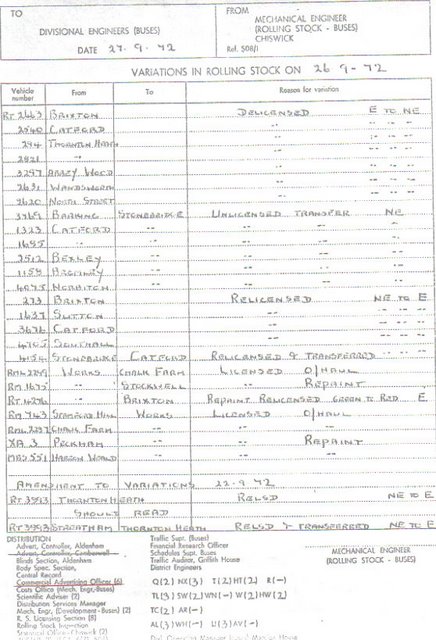 TO
FROM
DIVISIONAL ENGINEERS (BUSES)
DATE 27.9.72
MECHANICAL ENGINEER
(ROLLING STOCK - BUSES)
CHISWICK
Ref. 508/1
VARIATIONS IN ROLLING STOCK ON 26 9-72
Vehicle number From To Reason for variation
RT 2663 BRIXTON DELICENSED E TO NE
2540 CATFORD -- -- -- --
294 THORNTON HEATH -- -- -- --
2821 -- -- -- -- --
3297 ABBEY WOOD -- -- -- --
2631 WANDSWORTH -- -- -- --
2620 NORTH STREET -- -- -- --
3769 BARKING STONEBRIDGE UNLICENSED TRANSFER NE
1323 CATFORD -- -- -- --
1685 -- -- -- -- --
2512 BEXLEY -- -- -- --
1158 BROMLEY -- -- -- --
4075 NORBITON -- -- -- --
273 BRIXTON RELICENSED NE TO E
1637 SUTTON -- -- -- --
3676 CATFORD -- -- -- --
4705 SOUTHALL -- -- -- --
454 STONEBRIDGE CATFORD RELICENSED & TRANSFERRED -- -- --
RML 2299 WORKS CHALK FARM LICENSED O/HAUL
RM 1675 -- STOCKWELL -- REPAINT
RT 4276 -- BRIXTON REPAINT RELICENSED GREEN TO RED E
RM 743 STAMFORD HILL WORKS LICENSED O/HAUL
RML 2297 CHALK FARM -- -- --
XA 3 PECKHAM -- -- REPAINT
MBS 551 HARROW WEALD -- -- --
AMENDMENT TO VARIATIONS 22-9 72
RT 3593 THORNTON HEATH RELSD NE TO E
SHOULD READ
RT 3593 STREATHAM THORNTON HEATH RELSD & TRANSFERRED NE TO E
DISTRIBUTION
Advert. Controller, Aldenham
Advert. Controller, Camberwell
Blinds Section, Aldenham
Body Spec. Section,
Central Record
Commercial Advertising Officer (6)
Costs Office (Mech. Engr. Buses)
Scientific Adviser (2)
Distribution Services Manager
Mech. Engr. (Development - Buses) (2)
R. S. Licensing Section (8)
Rolling Stock Inspection
Statistical Office - Chiswick (2)
Traffic Supt. (Buses)
Financial Research Officer
Schedules Supt. Buses
Traffic Auditor, Griffith House
District Engineers
Q(2) NX(3) T(2) HT(2) R(-)
TL(3) SW(2) WN(-) W(2) HW(2)
TC(2) AR(-)
AL(3) WH(-) U(3) AV(-)
MECHANICAL ENGINEER
(ROLLING STOCK - BUSES)